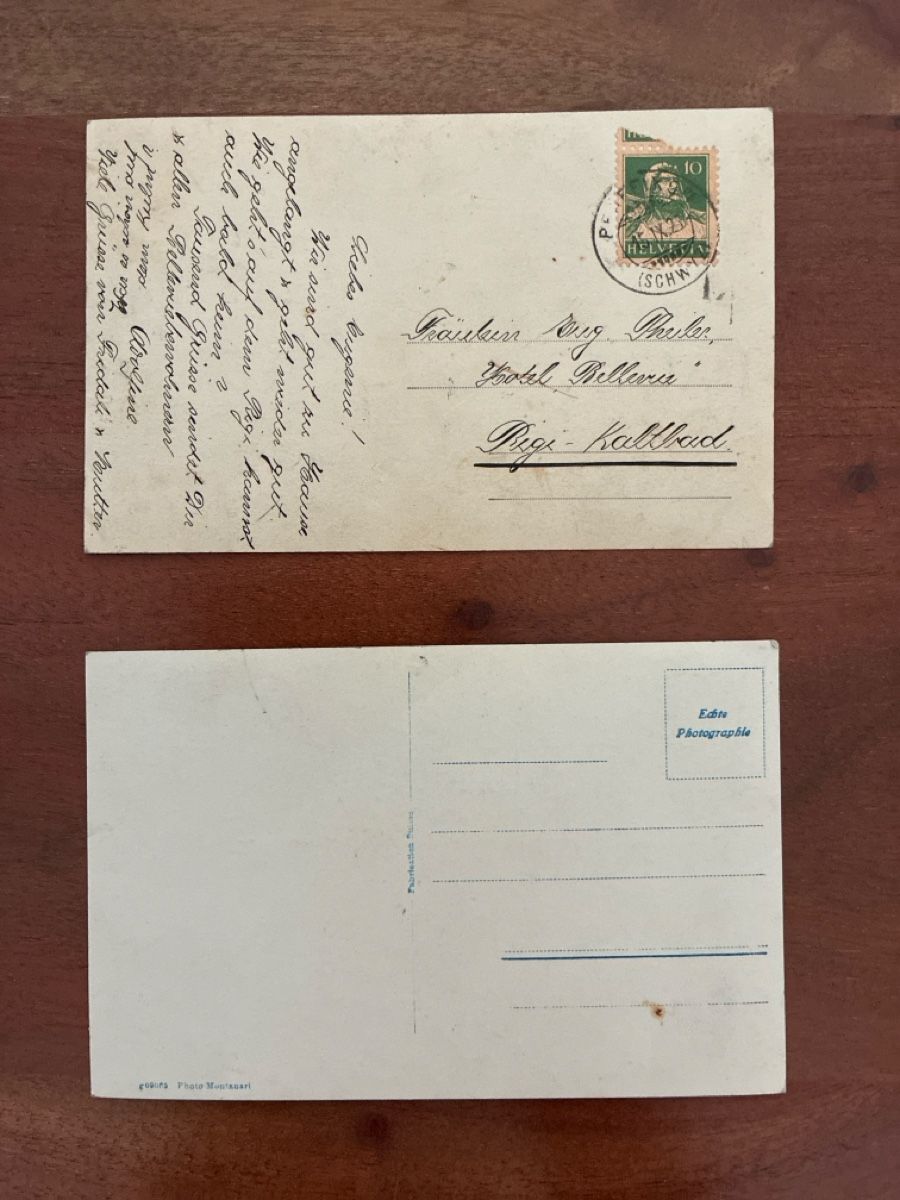 Liebes Eugenie!
Wir sind gut zu Hause
angelangt & geht wieder gut.
Wie geht's auf dem Rigi kannst
auch bald heim?
Tausend Grüsse sendet Dir
& allen Bellevuebewohnern
Viele Grüsse von Fridali & Mutter.
10
HELVETIA
(SCHWYZ)
Fräulein Eug.
"Hotel Bellevue"
Rigi-Kaltbad.
Echte
Photographie
Fabrication Suisse
Photo Montanari